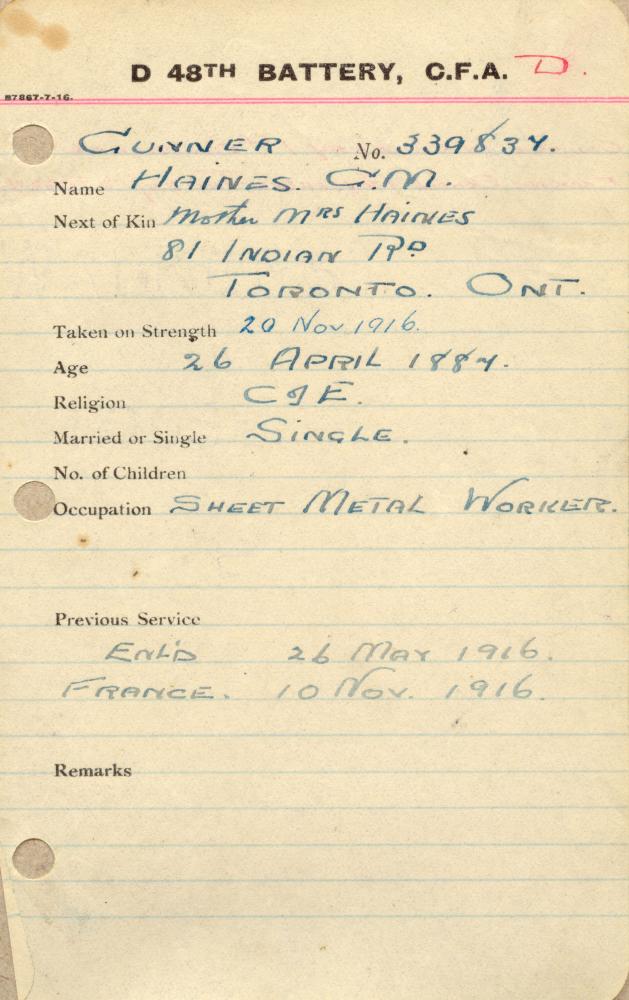 D 48TH BATTERY, C.F.A. D.
87867-7-16.
GUNNER No. 339837.
Name HAINES. G.M.
Next of Kin Mother MRS HAINES
81 INDIAN RD
TORONTO. ONT.
Taken on Strength 20 Nov 1916.
Age 26 APRIL 1887.
Religion C of E.
Married or Single SINGLE.
No. of Children
Occupation SHEET METAL WORKER.
Previous Service
ENL'D 26 MAY 1916.
FRANCE. 10 NOV. 1916.
Remarks